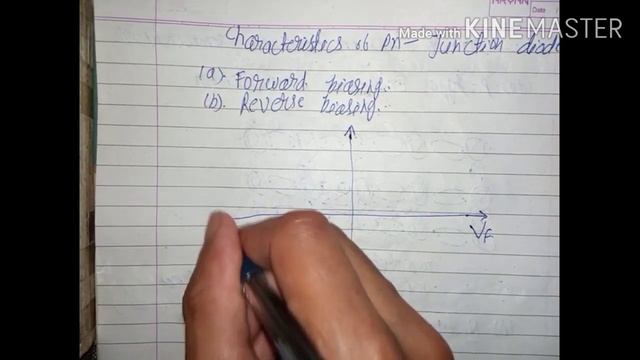 Made with KINEMASTER
Date
Characteristics of PN- Junction diode
(a). Forward biasing.
(b). Reverse biasing.
VF